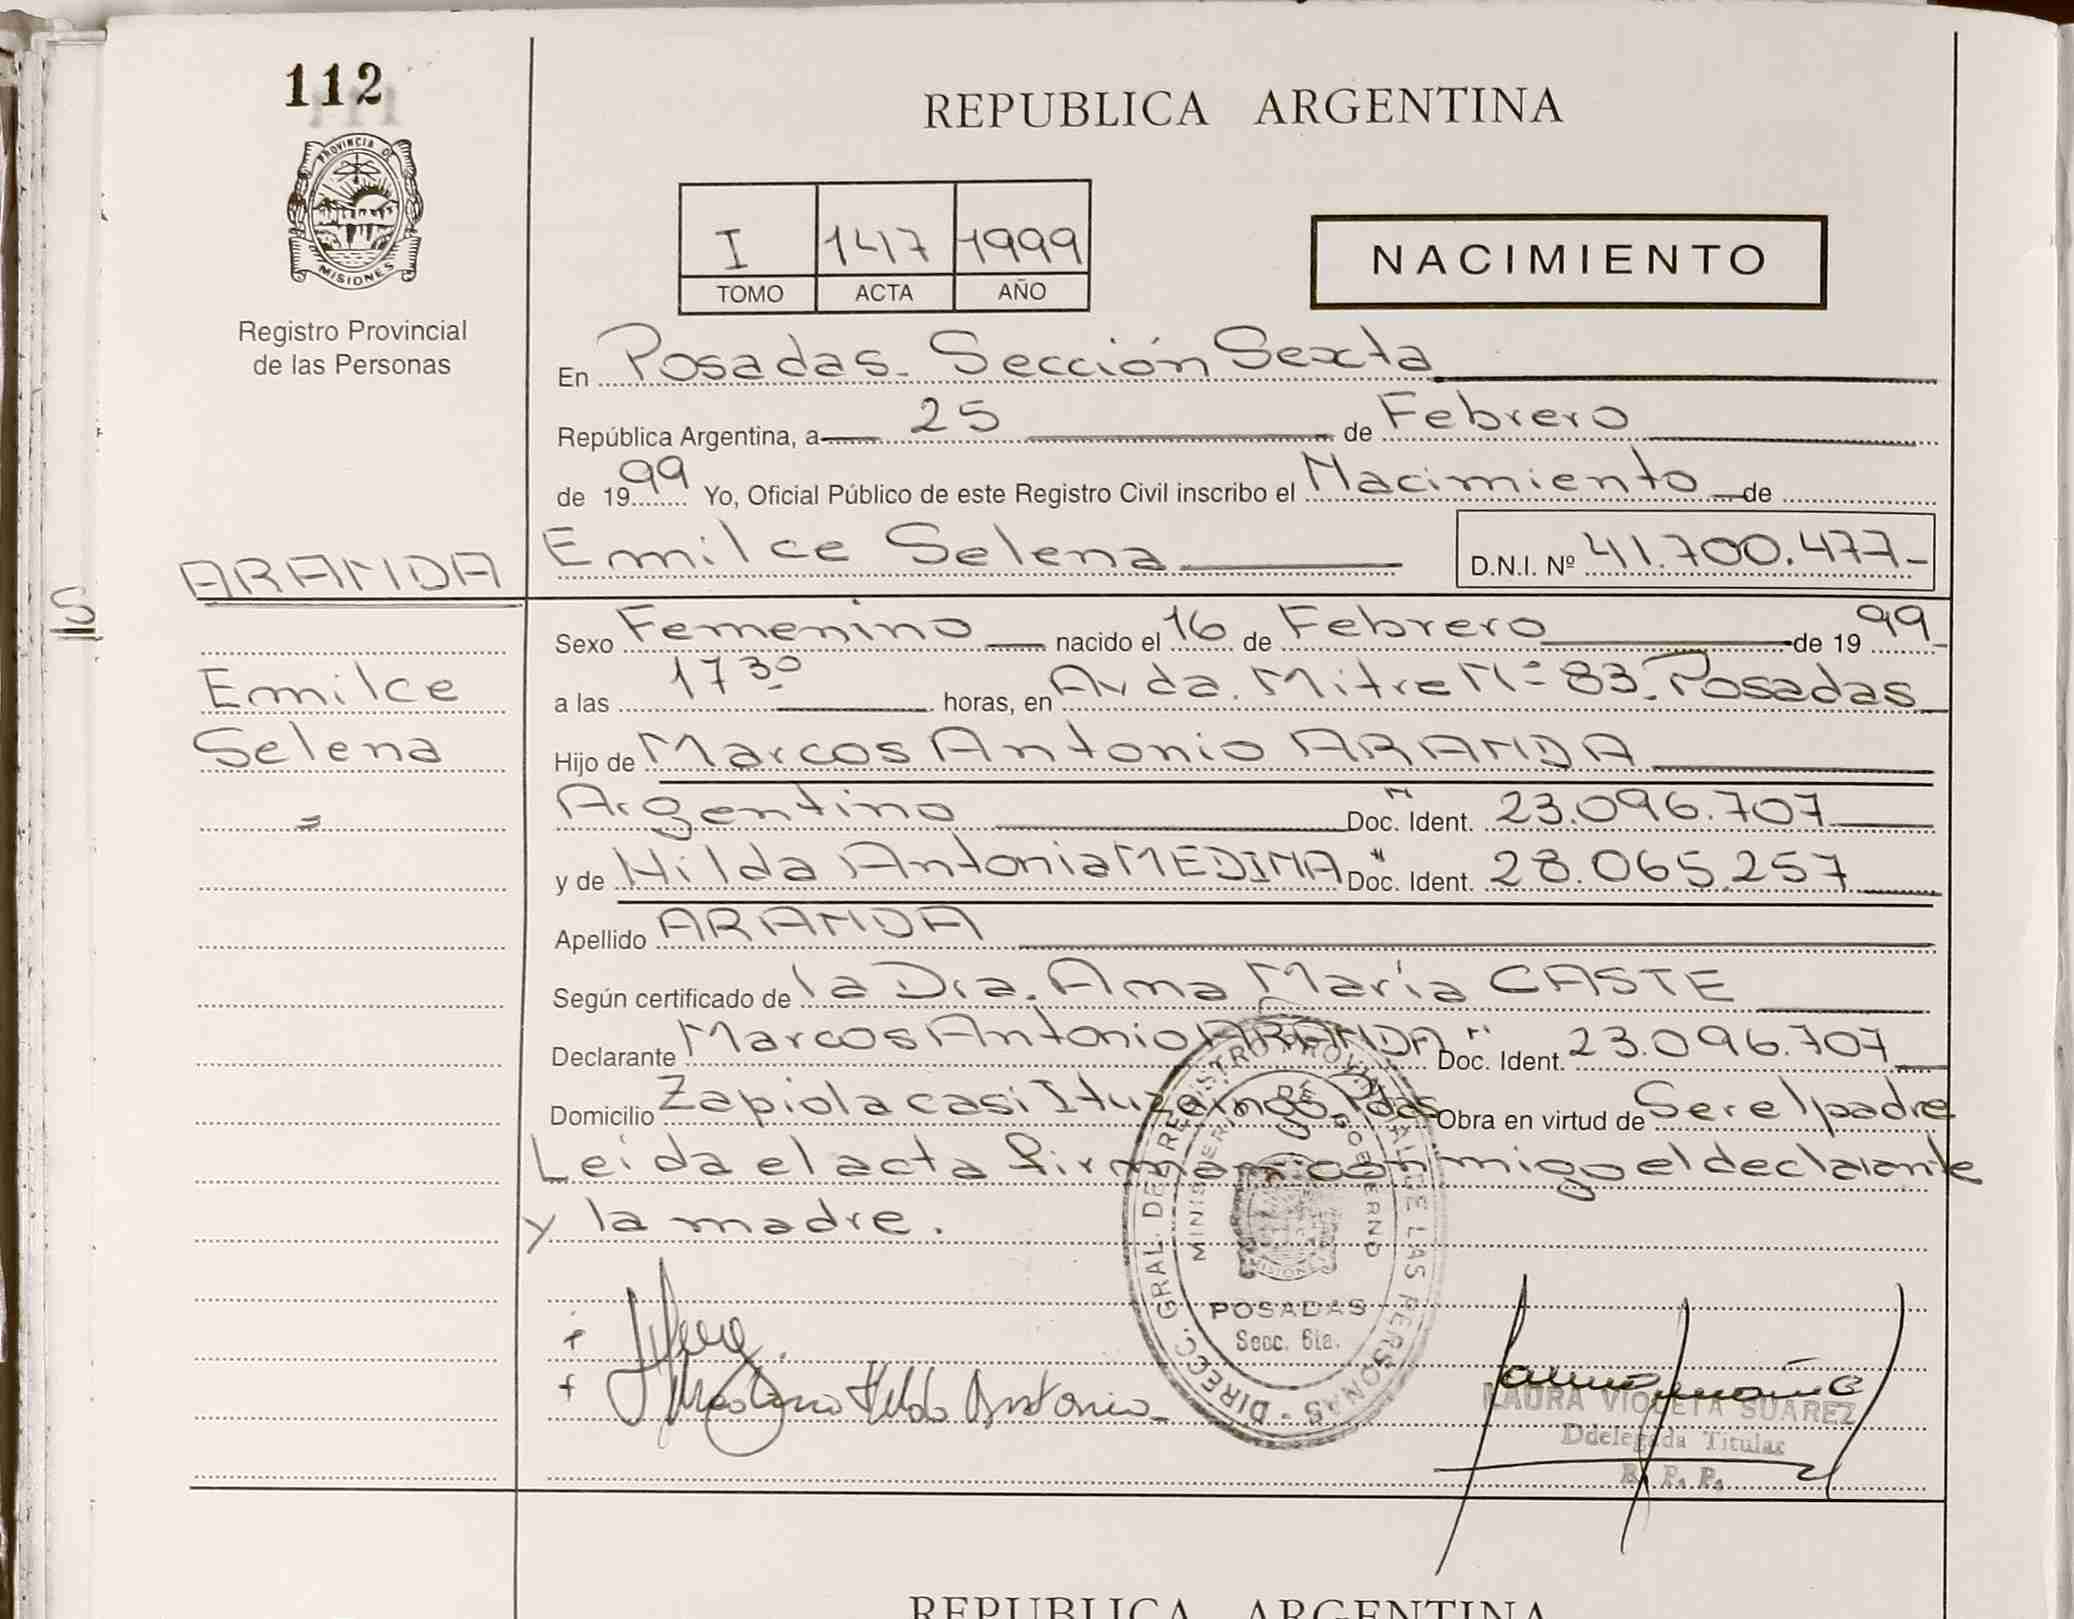 112
PROVINCIA DE
MISIONES
Registro Provincial
de las Personas
REPUBLICA ARGENTINA
I 1417 1999
TOMO ACTA AÑO
NACIMIENTO
En Posadas. Sección Sexta
República Argentina, a 25 de Febrero
de 1999 Yo, Oficial Público de este Registro Civil inscribo el Nacimiento de
ARANDA Emilce Selena D.N.I. Nº 41.700.477-
S
Sexo Femenino nacido el 16 de Febrero de 1999
Emilce a las 17 30 horas, en Avda. Mitre Nº 83. Posadas
Selena Hijo de Marcos Antonio ARANDA
= Argentino Doc. Ident. 23.096.707
y de Hilda Antonia MEDINA Doc. Ident. 28.065.257
Apellido ARANDA
Según certificado de la Dra. Ana María CASTE
Declarante Marcos Antonio ARANDA Doc. Ident. 23.096.707
Domicilio Zapiola casi Ituzaingo. Pdas Obra en virtud de Ser el padre
Leida el acta firman conmigo el declarante
y la madre.
DIRECC. GRAL. DEL REGISTRO PROVINCIAL DE LAS PERSONAS -
MINISTERIO DE GOBIERNO
MISIONES
POSADAS
Secc. 6ta.
Hilda Antonia
LAURA VIOLETA SUAREZ
Ddelegada Titular
R. P. P.
REPUBLICA ARGENTINA